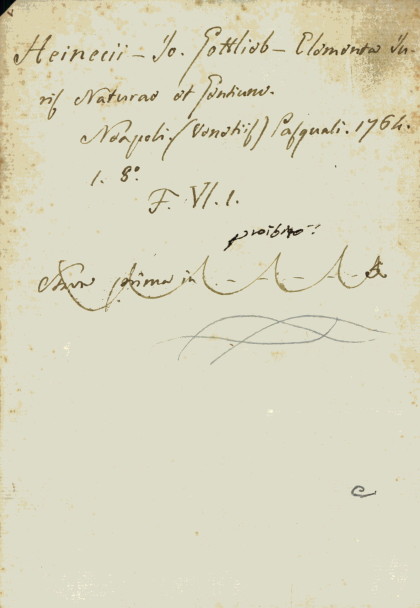 Heinecii - Jo. Gottlieb - Elementa Ju-
ris Naturae et Gentium.
Neapoli (Venetiis) Pasquali. 1764.
1. 8°.
F. VI. 1.
proibito
prima in
c